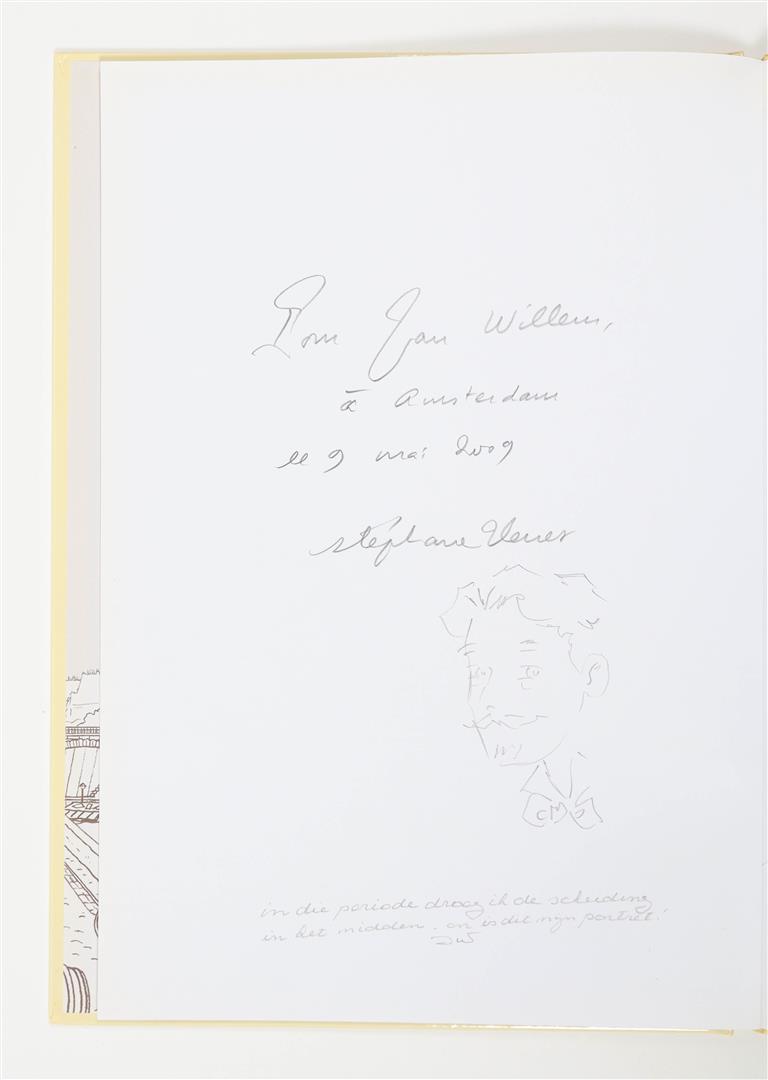 Pour Jan Willem,
à Amsterdam
le 9 mai 2009
Stéphane
in die periode droeg ik de scheiding
in het midden. en is dit mijn portret!
JW